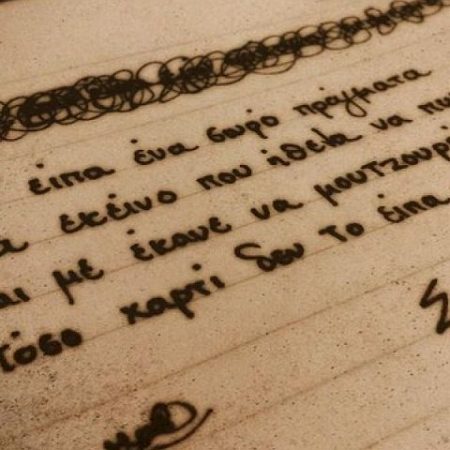 είπα ένα σωρό πράγματα
εκείνο που ήθελα να
με έκανε να μουτζουρ
τόσο χαρτί δεν το είπα